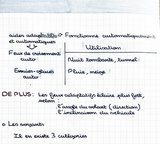 aides adaptables → Fonctionne automatiquement
et automatiques
Feux de croisement
auto
Utilisation
Nuit tombante, tunnel
Essuies-glaces
auto
Pluie, neige
DE PLUS: Les feux adaptatifs éclaire plus fort,
selon
l'angle du volant (direction)
L'inclinaison du véhicule
o Les airbags:
Il en existe 3 catégories